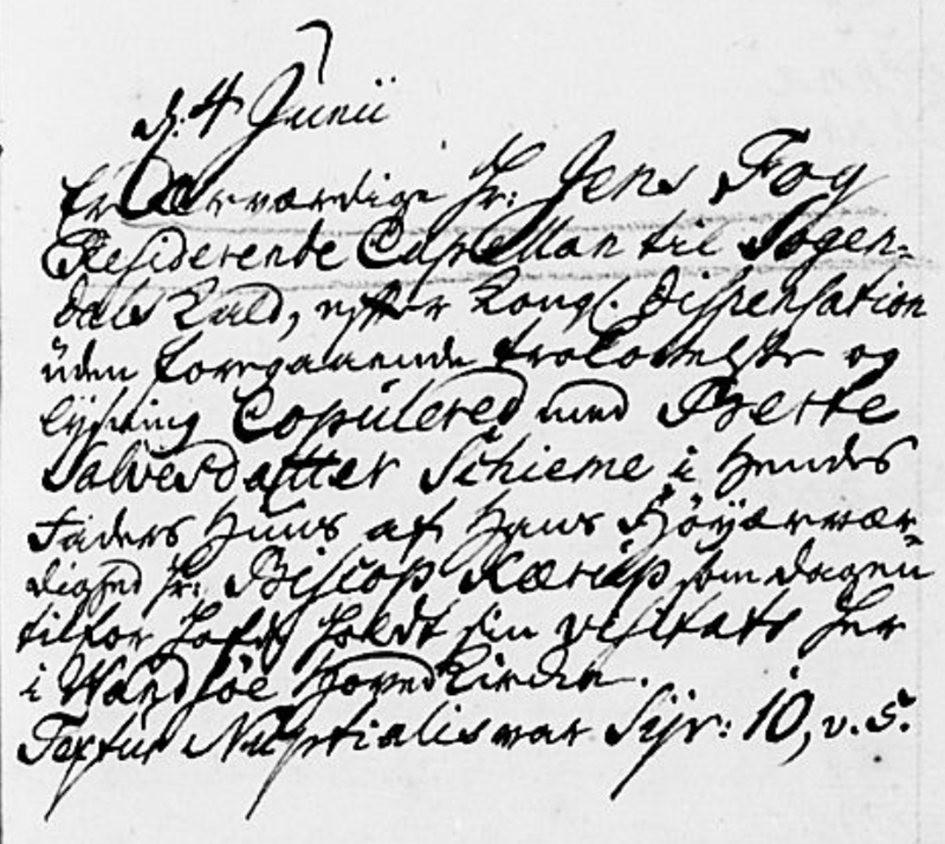 d. 4 Junii
Er Velærværdige Hr: Jens Fog
Residerende Capellan til Sogen-
dals Kald, efter Kongl. Dispensation
uden foregaaende Trolovelse og
lysning Copulered med Berte
Salvesdatter Schieme i Hendes
Faders Huus af Hans Höyærvær-
dighed Hr: Biscop Kærup som dagen
tilfor hafde holdt sin visitats her
i Wandsöe Hoved Kircke.
Textus Nuptialis var Syr: 10, v. 5.